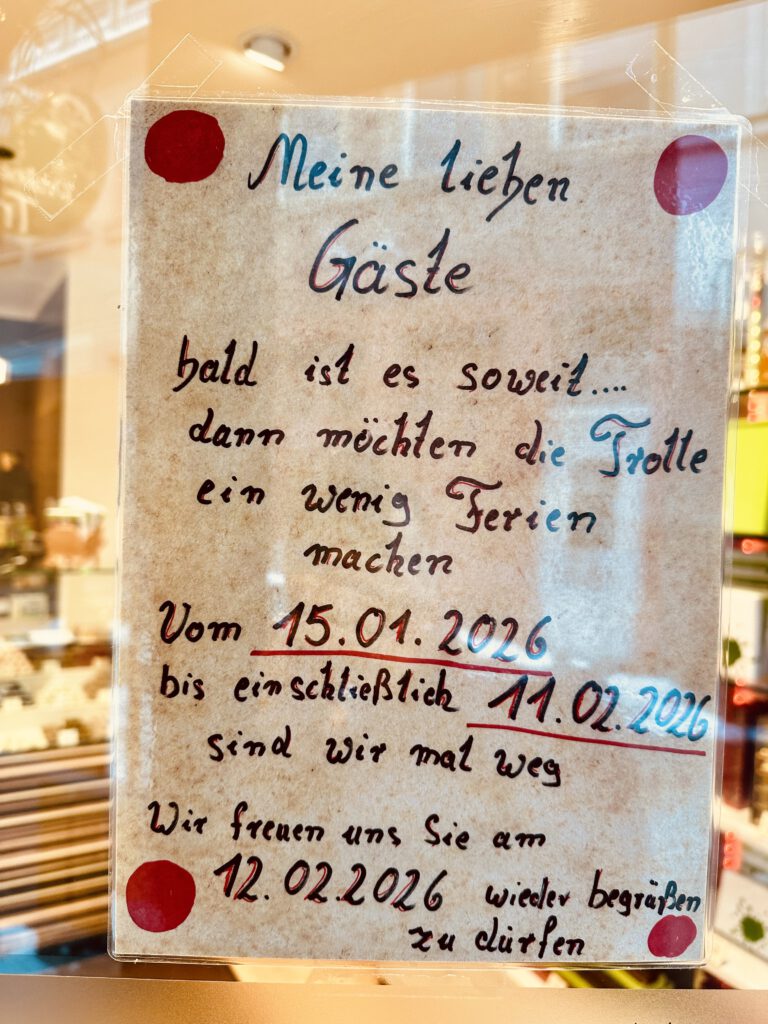 Meine lieben
Gäste
bald ist es soweit....
dann möchten die Trolle
ein wenig Ferien
machen
Vom 15.01.2026
bis einschließlich 11.02.2026
sind wir mal weg
Wir freuen uns Sie am
12.02.2026 wieder begrüßen
zu dürfen